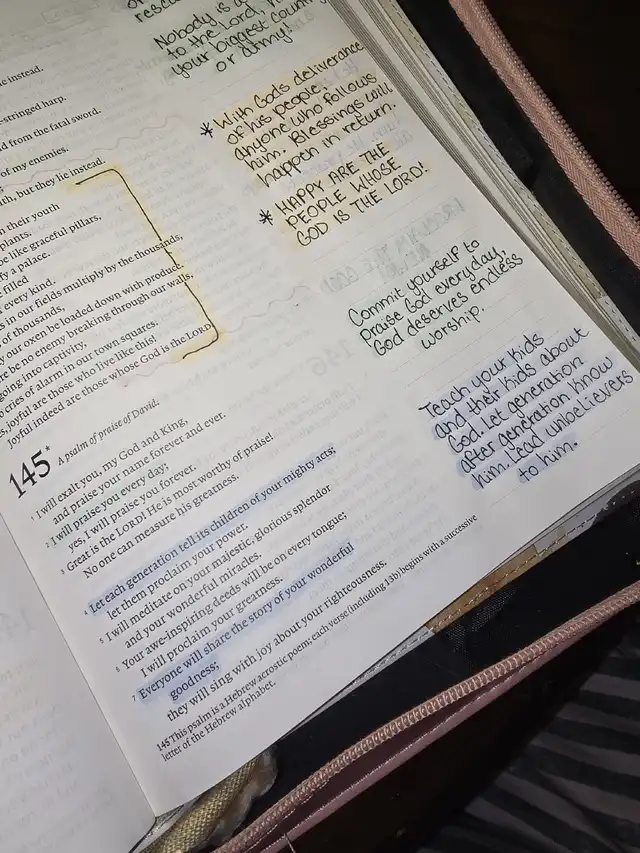 rescu
Nobody is a
to the Lord. n
your biggest count
or army!
* With Gods deliverance
of his people,
anyone who follows
him. Blessings will
happen in return.
* HAPPY ARE THE
PEOPLE WHOSE
GOD IS THE LORD!
Commit yourself to
praise God everyday.
God deserves endless
worship.
Teach your kids
and their kids about
God. Let generation
after generation know
him. Lead unbelievers
to him.
instead.
-stringed harp.
d from the fatal sword.
of my enemies.
th, but they lie instead.
n their youth
plants.
be like graceful pillars,
fy a palace.
filled
every kind.
s in our fields multiply by the thousands,
of thousands,
our oxen be loaded down with produce.
re be no enemy breaking through our walls,
going into captivity,
cries of alarm in our town squares.
s, joyful are those who live like this!
Joyful indeed are those whose God is the LORD.
145* A psalm of praise of David.
1 I will exalt you, my God and King,
and praise your name forever and ever.
2 I will praise you every day;
yes, I will praise you forever.
3 Great is the LORD! He is most worthy of praise!
No one can measure his greatness.
4 Let each generation tell its children of your mighty acts;
let them proclaim your power.
5 I will meditate on your majestic, glorious splendor
and your wonderful miracles.
6 Your awe-inspiring deeds will be on every tongue;
I will proclaim your greatness.
7 Everyone will share the story of your wonderful
goodness;
they will sing with joy about your righteousness.
145 This psalm is a Hebrew acrostic poem; each verse (including 13b) begins with a successive
letter of the Hebrew alphabet.